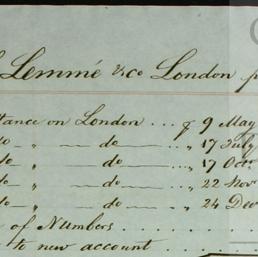 Lemmé & Co London
tance on London ... f 9 May
do — „ — do — ... „ 17 July
do — „ — do — ... „ 17 Octr
do — „ — do — ... „ 22 Nov
do — „ — do — ... „ 24 Dec
of Numbers . . . . .
to new account . . . .